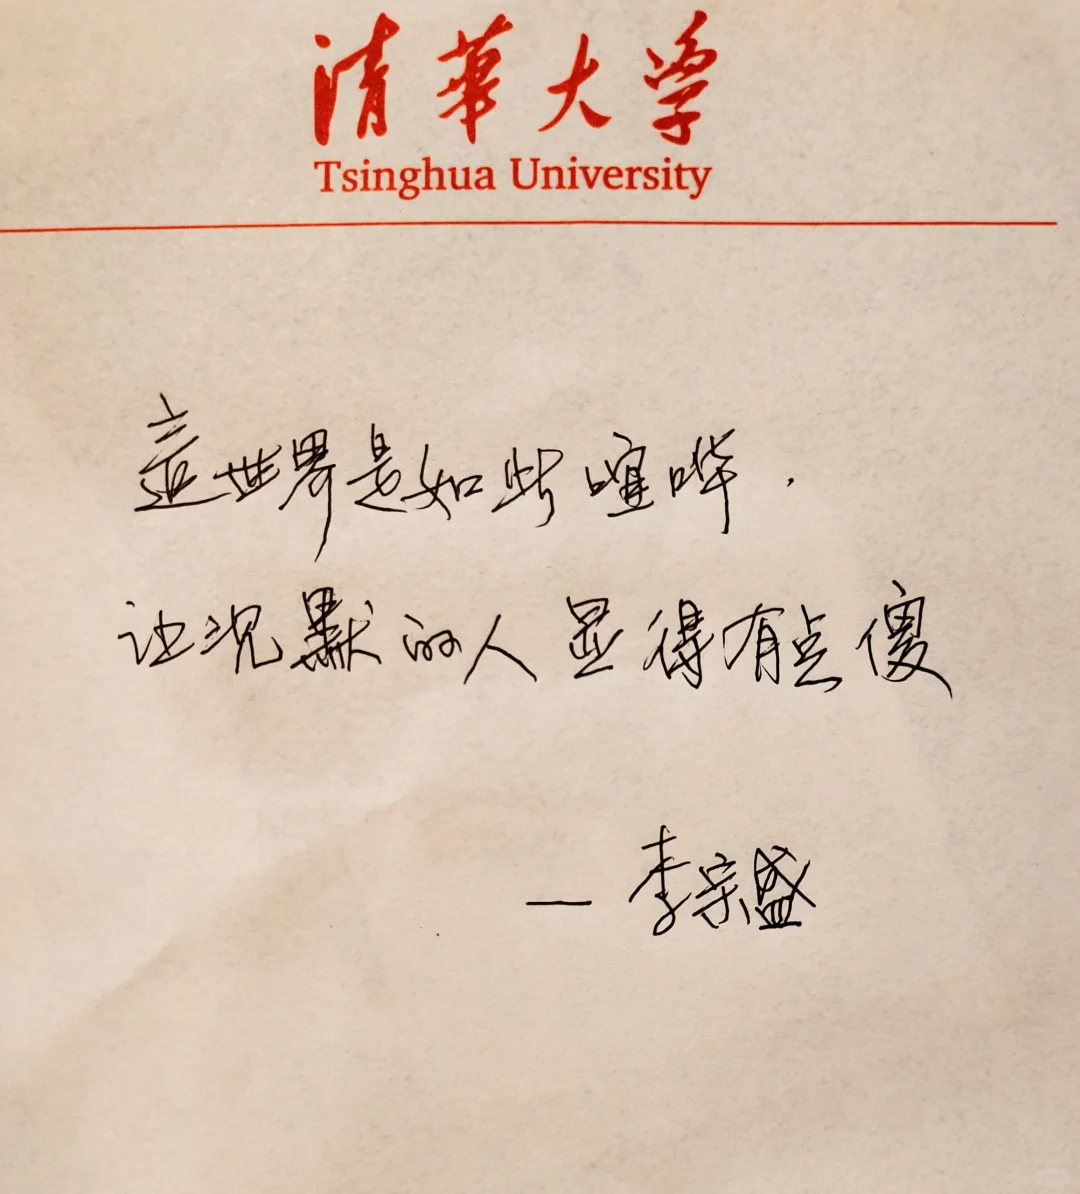 清華大学
Tsinghua University
這世界是如此喧哗.
让沉默的人显得有点傻
— 李宗盛